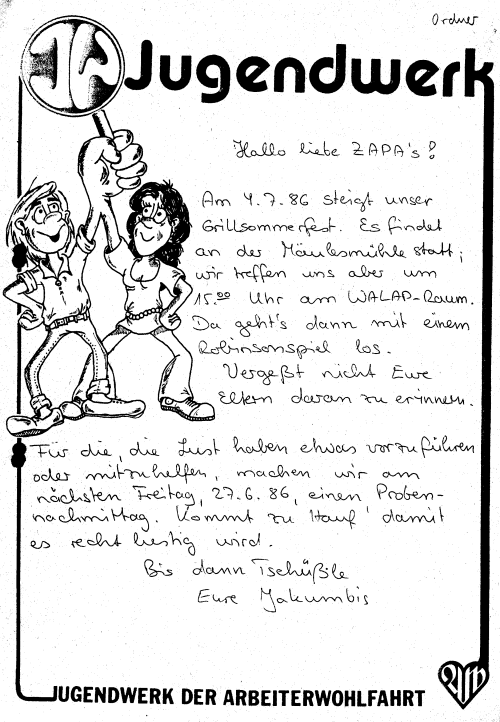 Ordner
Jugendwerk
Hallo liebe ZAPA's!
Am 4.7.86 steigt unser
Grillsommerfest. Es findet
an der Mäulesmühle statt;
wir treffen uns aber um
15.00 Uhr am WALAP-Raum.
Da geht's dann mit einem
Robinsonspiel los.
Vergeßt nicht Eure
Eltern daran zu erinnern.
Für die, die Lust haben etwas vorzuführen
oder mitzuhelfen, machen wir am
nächsten Freitag, 27.6.86, einen Proben-
nachmittag. Kommt zu Hauf' damit
es recht lustig wird.
Bis dann Tschüßle
Eure Jakumbis
JUGENDWERK DER ARBEITERWOHLFAHRT
AW